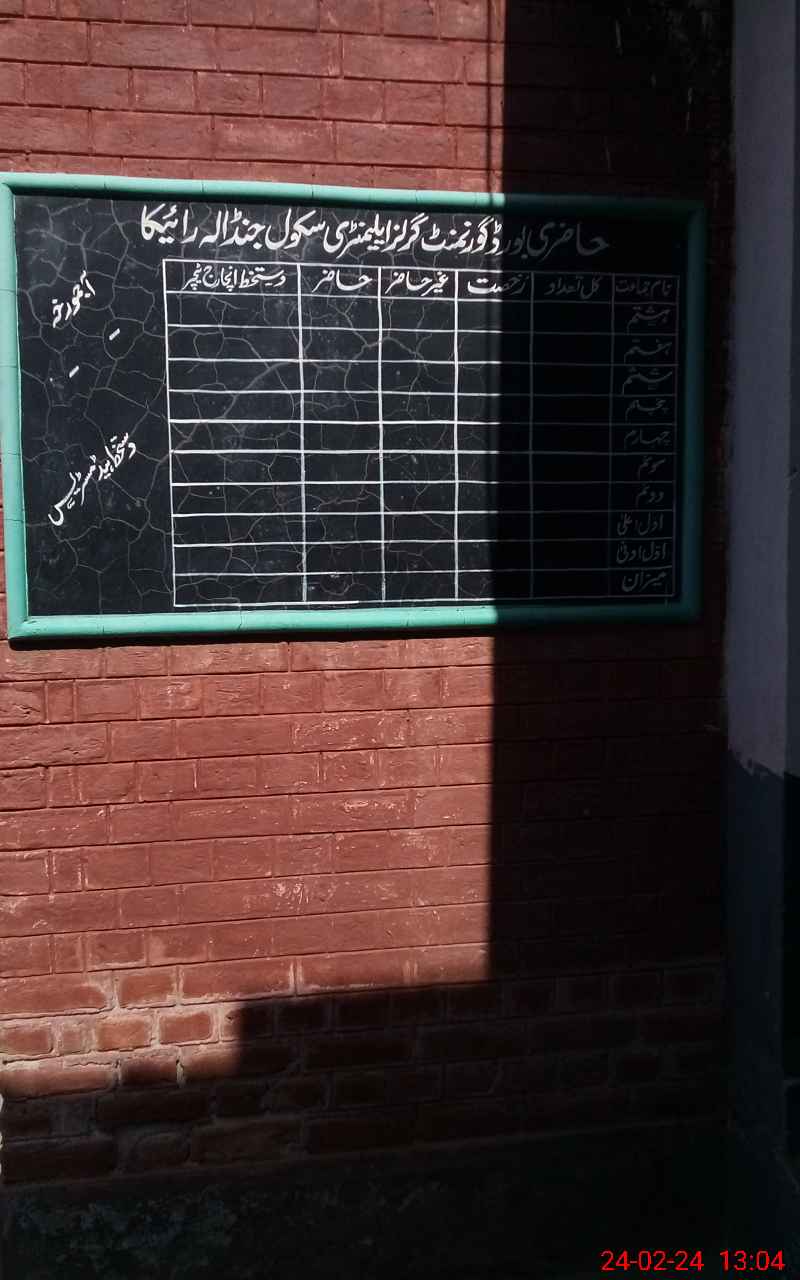 حاضری بورڈ گورنمنٹ گرلز ایلیمنٹری سکول جنڈالہ رائیکا
نام جماعت کل تعداد رخصت غیر حاضر حاضر دستخط انچارج ٹیچر
ہشتم
ہفتم
ششتم
پنجم
چہارم
سوئم
دوئم
اول اعلیٰ
اول ادنیٰ
میزان
آج مورخہ
دستخط ہیڈ مسٹریس
24-02-24 13:04